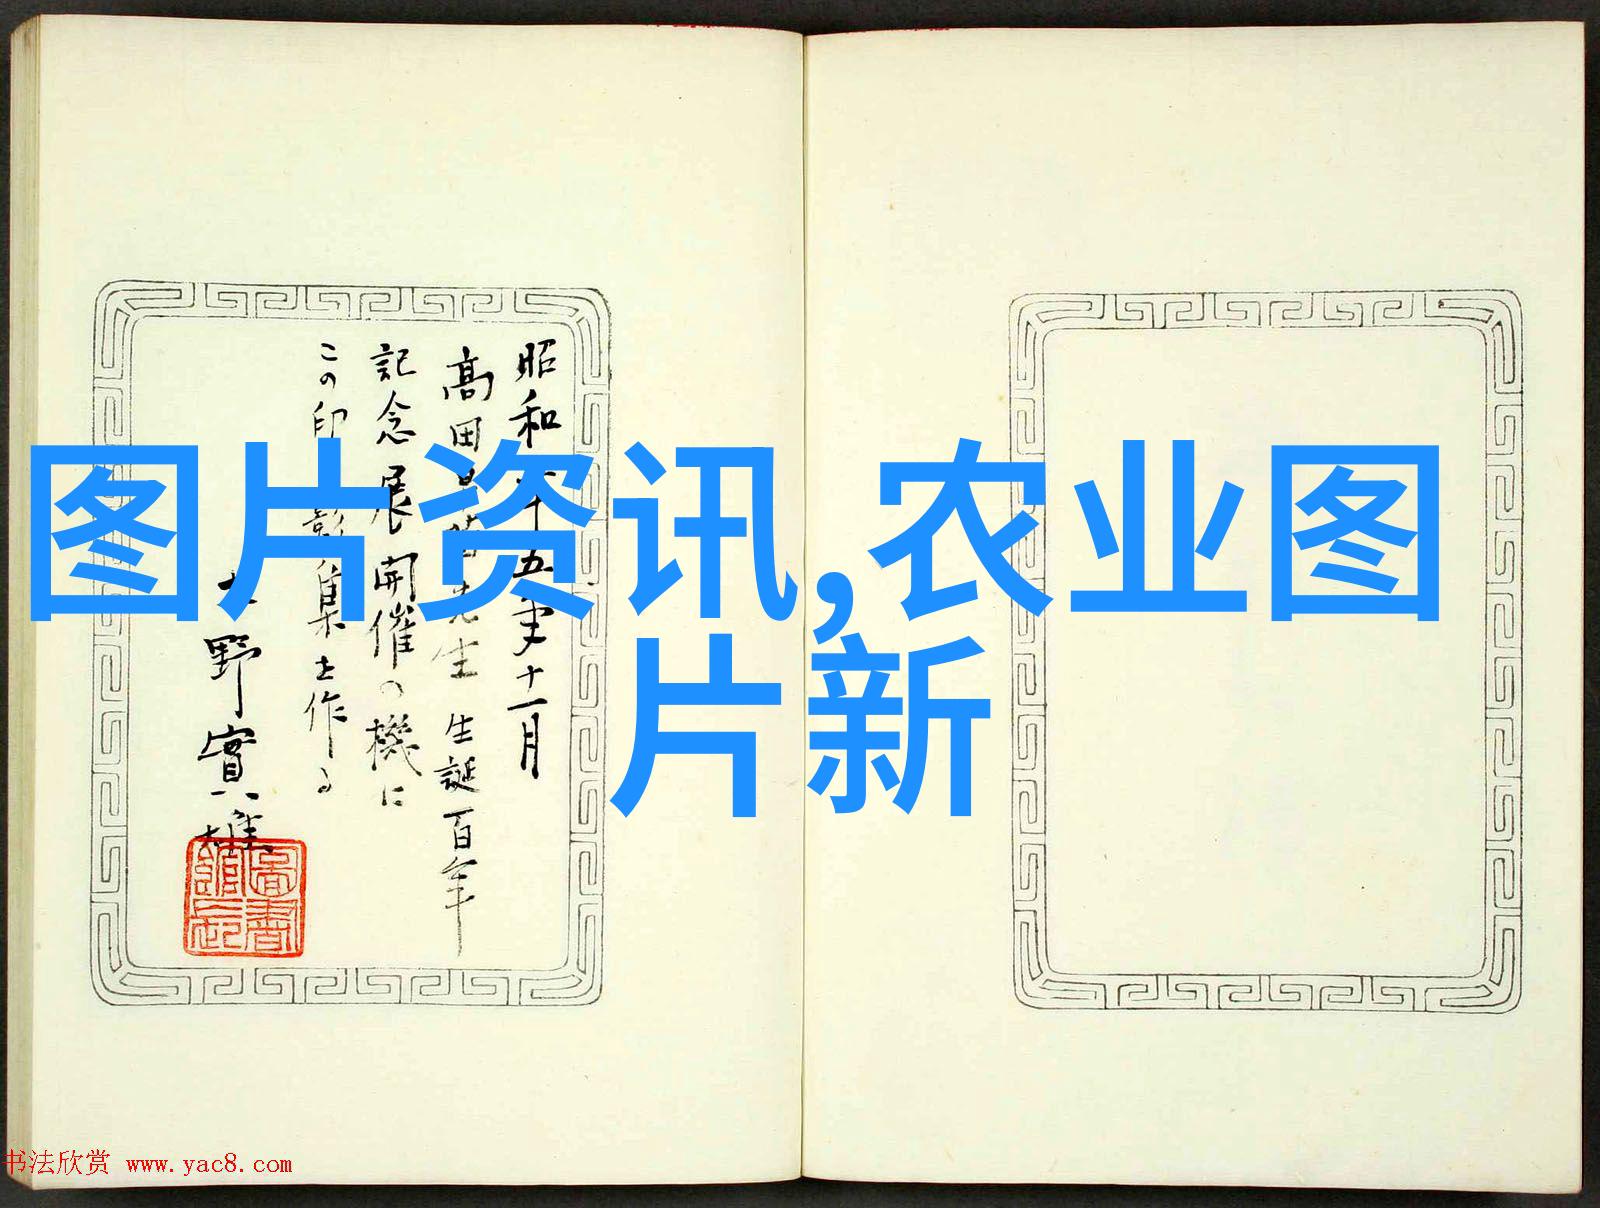 图片资讯,农业图
片新
昭和 五年十一月
高田 先生 生誕百年
記念展開催の機に
この印 集を作る
野實雄
圖書
館長
书法欣赏 www.yac8.com